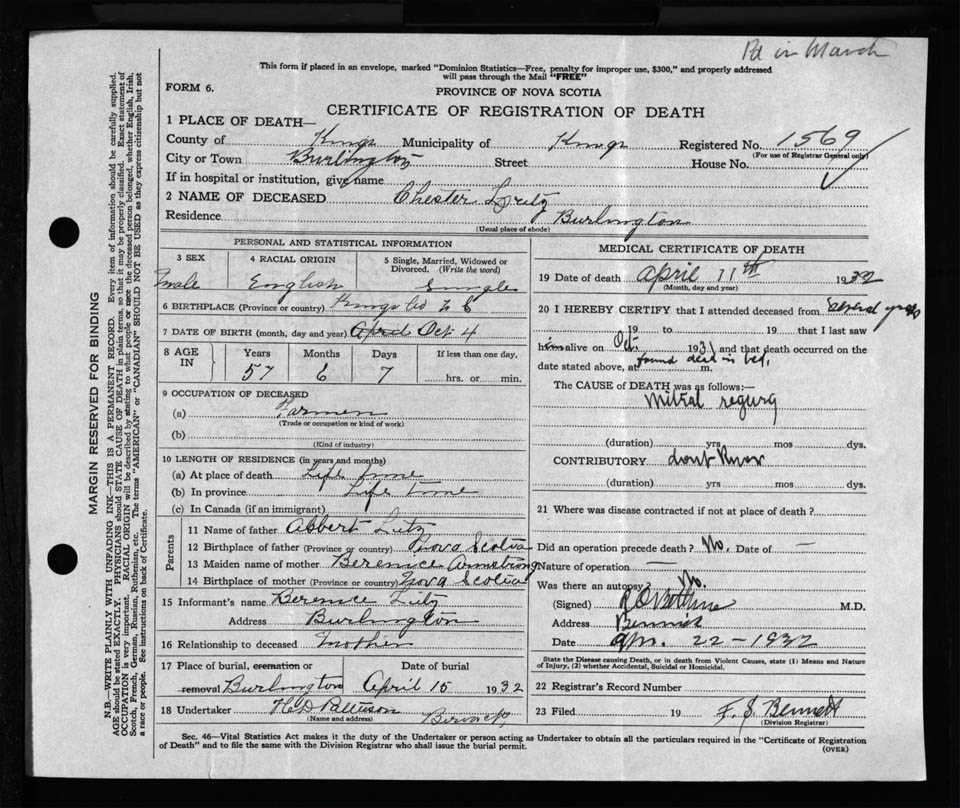 Pd in March
This form if placed in an envelope, marked "Dominion Statistics—Free, penalty for improper use, $300," and properly addressed
will pass through the Mail "FREE"
FORM 6.
PROVINCE OF NOVA SCOTIA
CERTIFICATE OF REGISTRATION OF DEATH
1 PLACE OF DEATH—
County of Kings Municipality of Kings Registered No. 1569
(For use of Registrar General only)
City or Town Burlington Street House No.
If in hospital or institution, give name
2 NAME OF DECEASED Chester Lutz
Residence Burlington
(Usual place of abode)
PERSONAL AND STATISTICAL INFORMATION
3 SEX 4 RACIAL ORIGIN 5 Single, Married, Widowed or Divorced. (Write the word)
Male English Single
6 BIRTHPLACE (Province or country) Kings Co N S
7 DATE OF BIRTH (month, day and year) April Oct 4
8 AGE IN Years Months Days If less than one day,
57 6 7 hrs. or min.
9 OCCUPATION OF DECEASED
(a) Farmer
(Trade or occupation or kind of work)
(b)
(Kind of industry)
10 LENGTH OF RESIDENCE (in years and months)
(a) At place of death Life time
(b) In province Life Time
(c) In Canada (if an immigrant)
Parents
11 Name of father Albert Lutz
12 Birthplace of father (Province or country) Nova Scotia
13 Maiden name of mother Berenice Armstrong
14 Birthplace of mother (Province or country) Nova Scotia
15 Informant's name Berenice Lutz
Address Burlington
16 Relationship to deceased Mother
17 Place of burial, cremation or removal Burlington Date of burial April 15 1932
18 Undertaker H D
(Name and address) Berwick
MEDICAL CERTIFICATE OF DEATH
19 Date of death April 11th 1932
(Month, day and year)
20 I HEREBY CERTIFY that I attended deceased from Several years
19 to 19 that I last saw
him alive on Oct. 1931 and that death occurred on the
date stated above, at found dead in bed. m.
The CAUSE of DEATH was as follows:—
Mitral regurg
(duration) yrs mos dys.
CONTRIBUTORY dont know
(duration) yrs. mos. dys.
21 Where was disease contracted if not at place of death?
Did an operation precede death? No. Date of —
Nature of operation —
Was there an autopsy? No.
(Signed) M.D.
Address Berwick
Date Apr. 22-1932
State the Disease causing Death, or in death from Violent Causes, state (1) Means and Nature of Injury, (2) whether Accidental, Suicidal or Homicidal.
22 Registrar's Record Number
23 Filed 19 F. S. Bennett
(Division Registrar)
Sec. 46—Vital Statistics Act makes it the duty of the Undertaker or person acting as Undertaker to obtain all the particulars required in the "Certificate of Registration
of Death" and to file the same with the Division Registrar who shall issue the burial permit.
(OVER)
MARGIN RESERVED FOR BINDING
N.B.—WRITE PLAINLY WITH UNFADING INK—THIS IS A PERMANENT RECORD. Every item of information should be carefully supplied.
AGE should be stated EXACTLY. PHYSICIANS should STATE CAUSE OF DEATH in plain terms, so that it may be properly classified. Exact statement of
OCCUPATION is very important. RACIAL ORIGIN will be described by stating to what people or race the deceased person belonged, whether English, Irish,
Scotch, French, German, Russian, Ruthenian, etc. The terms "AMERICAN" or "CANADIAN" SHOULD NOT BE USED as they express citizenship but not
a race or people. See instructions on back of Certificate.